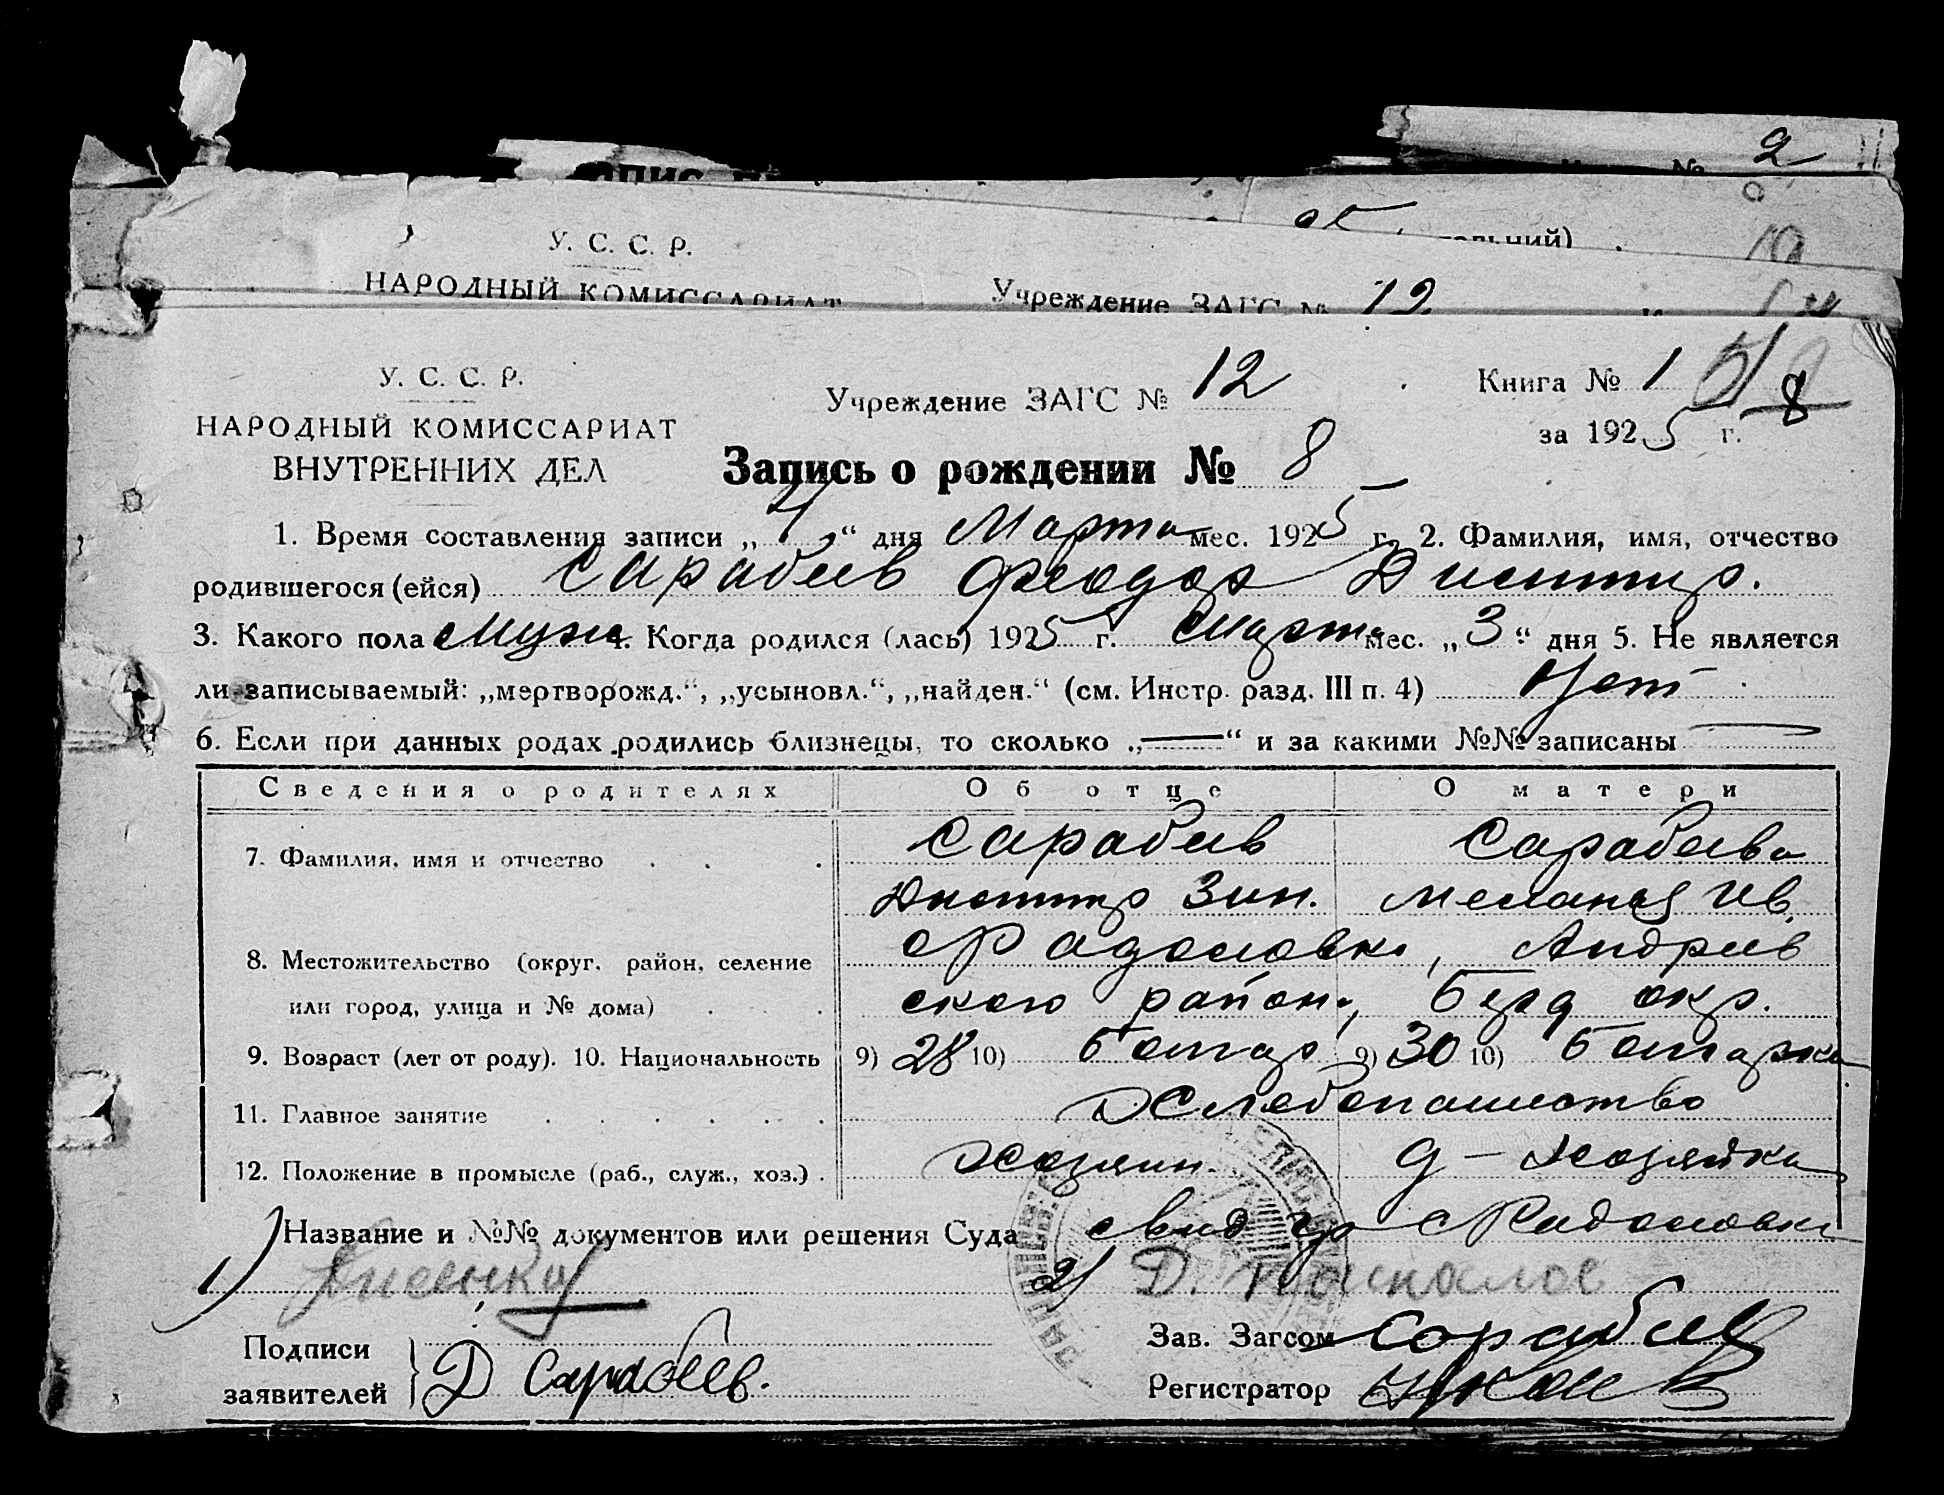 № 2
У. С. С. Р.
НАРОДНЫЙ КОМИССАРИАТ
Учреждение ЗАГС № 12
У. С. С. Р.
НАРОДНЫЙ КОМИССАРИАТ
ВНУТРЕННИХ ДЕЛ
Учреждение ЗАГС № 12
Книга № 1
8
за 1925 г.
Запись о рождении № 8
1. Время составления записи „4“ дня Марта мес. 1925 г. 2. Фамилия, имя, отчество
родившегося (ейся) Сарабеев Феодор Дмитр.
3. Какого пола Муж 4. Когда родился (лась) 1925 г. Марта мес. „3“ дня 5. Не является
ли записываемый: „мертворожд.“, „усыновл.“, „найден.“ (см. Инстр. разд. III п. 4) Нет
6. Если при данных родах родились близнецы, то сколько „—“ и за какими №№ записаны —
Сведения о родителях Об отце О матери
7. Фамилия, имя и отчество Сарабеев Сарабеева
Дмитр Зин. Мелания Ив.
8. Местожительство (округ. район, селение с Радоловка, Андреев
или город, улица и № дома) ского район, Берд окр.
9. Возраст (лет от роду). 10. Национальность 9) 28 10) болгар 9) 30 10) болгарка
11. Главное занятие Хлебопашество
12. Положение в промысле (раб., служ., хоз.) Хозяин. д-хозяйка
Название и №№ документов или решения Суда свид с Радоловки
1) 2) Д.
Подписи
заявителей Д Сарабеев.
Зав. Загсом Сорабеев
Регистратор